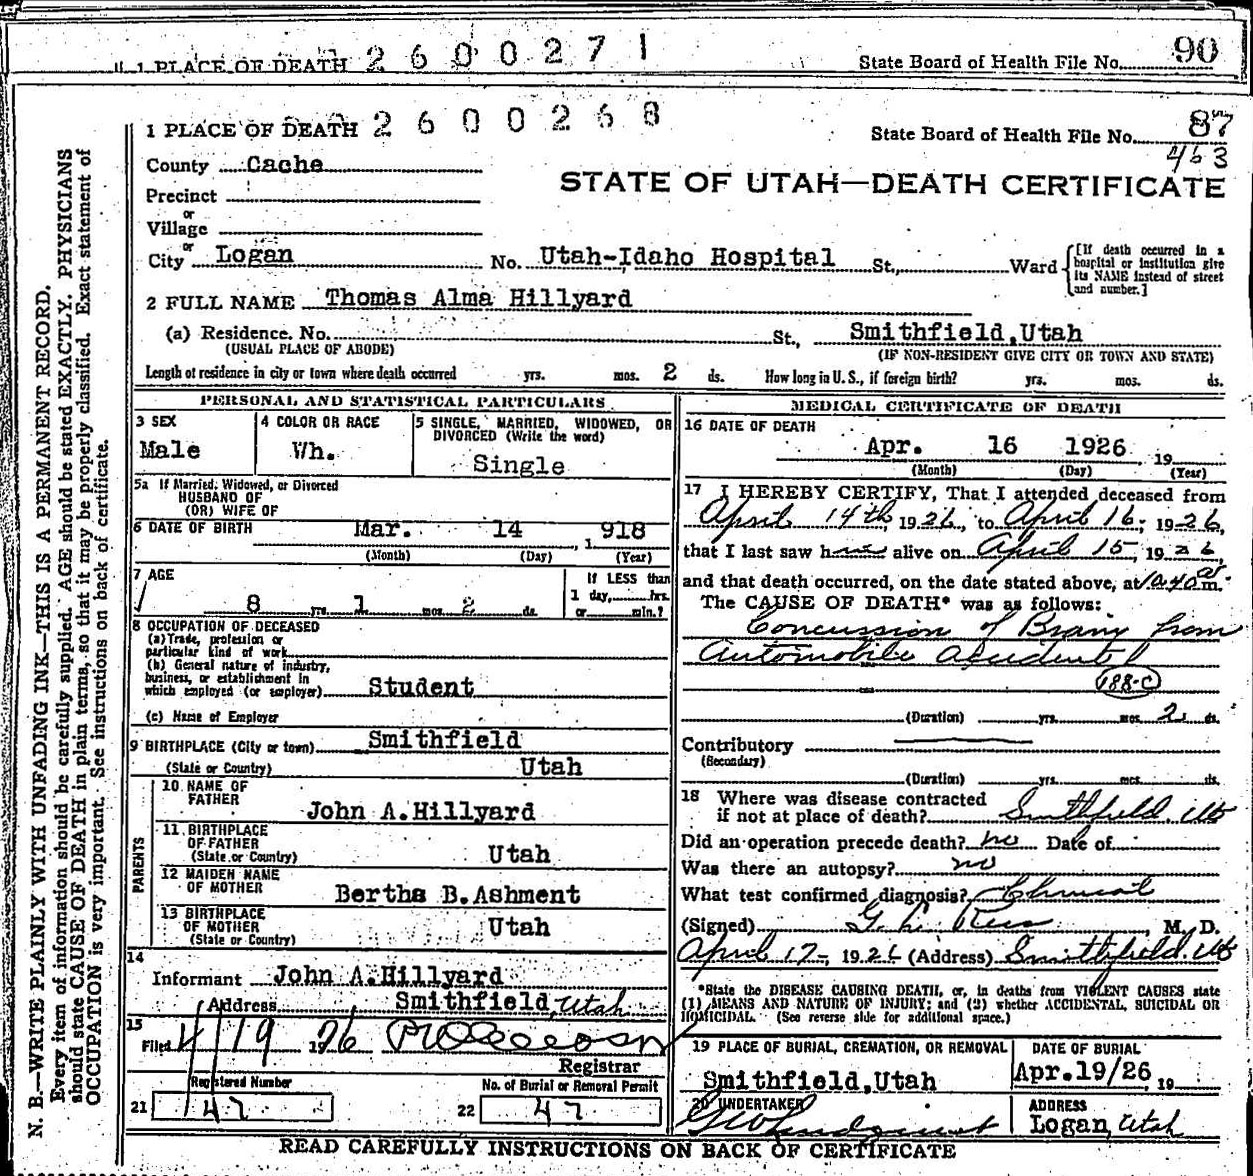 1 PLACE OF DEATH 2600271 State Board of Health File No. 90
1 PLACE OF DEATH 2600268 State Board of Health File No. 87
463
County Cache
STATE OF UTAH—DEATH CERTIFICATE
Precinct
or
Village
or
City Logan No. Utah-Idaho Hospital St., Ward [If death occurred in a hospital or institution give its NAME instead of street and number.]
2 FULL NAME Thomas Alma Hillyard
(a) Residence. No. St., Smithfield, Utah
(USUAL PLACE OF ABODE) (IF NON-RESIDENT GIVE CITY OR TOWN AND STATE)
Length of residence in city or town where death occurred yrs. mos. 2 ds. How long in U. S., if foreign birth? yrs. mos. ds.
N. B.—WRITE PLAINLY WITH UNFADING INK—THIS IS A PERMANENT RECORD.
Every item of information should be carefully supplied. AGE should be stated EXACTLY. PHYSICIANS
should state CAUSE OF DEATH in plain terms, so that it may be properly classified. Exact statement of
OCCUPATION is very important. See instructions on back of certificate.
PERSONAL AND STATISTICAL PARTICULARS
3 SEX
Male
4 COLOR OR RACE
Wh.
5 SINGLE, MARRIED, WIDOWED, OR
DIVORCED (Write the word)
Single
5a If Married, Widowed, or Divorced
HUSBAND OF
(OR) WIFE OF
6 DATE OF BIRTH Mar. 14, 1918
(Month) (Day) (Year)
7 AGE
8 yrs. 1 mos. 2 ds.
If LESS than
1 day, hrs.
or min.?
8 OCCUPATION OF DECEASED
(a) Trade, profession or
particular kind of work
(b) General nature of industry,
business, or establishment in
which employed (or employer) Student
(c) Name of Employer
9 BIRTHPLACE (City or town) Smithfield
(State or Country) Utah
PARENTS
10 NAME OF
FATHER
John A. Hillyard
11 BIRTHPLACE
OF FATHER
(State or Country) Utah
12 MAIDEN NAME
OF MOTHER
Bertha B. Ashment
13 BIRTHPLACE
OF MOTHER
(State or Country) Utah
14
Informant John A. Hillyard
Address Smithfield, Utah
15
Filed 4/19 1926
Registrar
Registered Number No. of Burial or Removal Permit
21 47 22 47
MEDICAL CERTIFICATE OF DEATH
16 DATE OF DEATH
Apr. 16 1926, 19
(Month) (Day) (Year)
17 I HEREBY CERTIFY, That I attended deceased from
April 14th, 1926, to April 16, 1926,
that I last saw him alive on April 15, 1926,
and that death occurred, on the date stated above, at 10.40 a m.
The CAUSE OF DEATH* was as follows:
Concussion of Brain from
Automobile accident
188-C
(Duration) yrs. mos. 2 ds.
Contributory
(Secondary)
(Duration) yrs. mos. ds.
18 Where was disease contracted
if not at place of death? Smithfield, Ut
Did an operation precede death? no Date of
Was there an autopsy? no
What test confirmed diagnosis? Clinical
(Signed) M. D.
April 17, 1926 (Address) Smithfield, Ut
*State the DISEASE CAUSING DEATH, or, in deaths from VIOLENT CAUSES state
(1) MEANS AND NATURE OF INJURY; and (2) whether ACCIDENTAL, SUICIDAL OR
HOMICIDAL. (See reverse side for additional space.)
19 PLACE OF BURIAL, CREMATION, OR REMOVAL
Smithfield, Utah
DATE OF BURIAL
Apr. 19/26, 19
20 UNDERTAKER
ADDRESS
Logan, Utah
READ CAREFULLY INSTRUCTIONS ON BACK OF CERTIFICATE